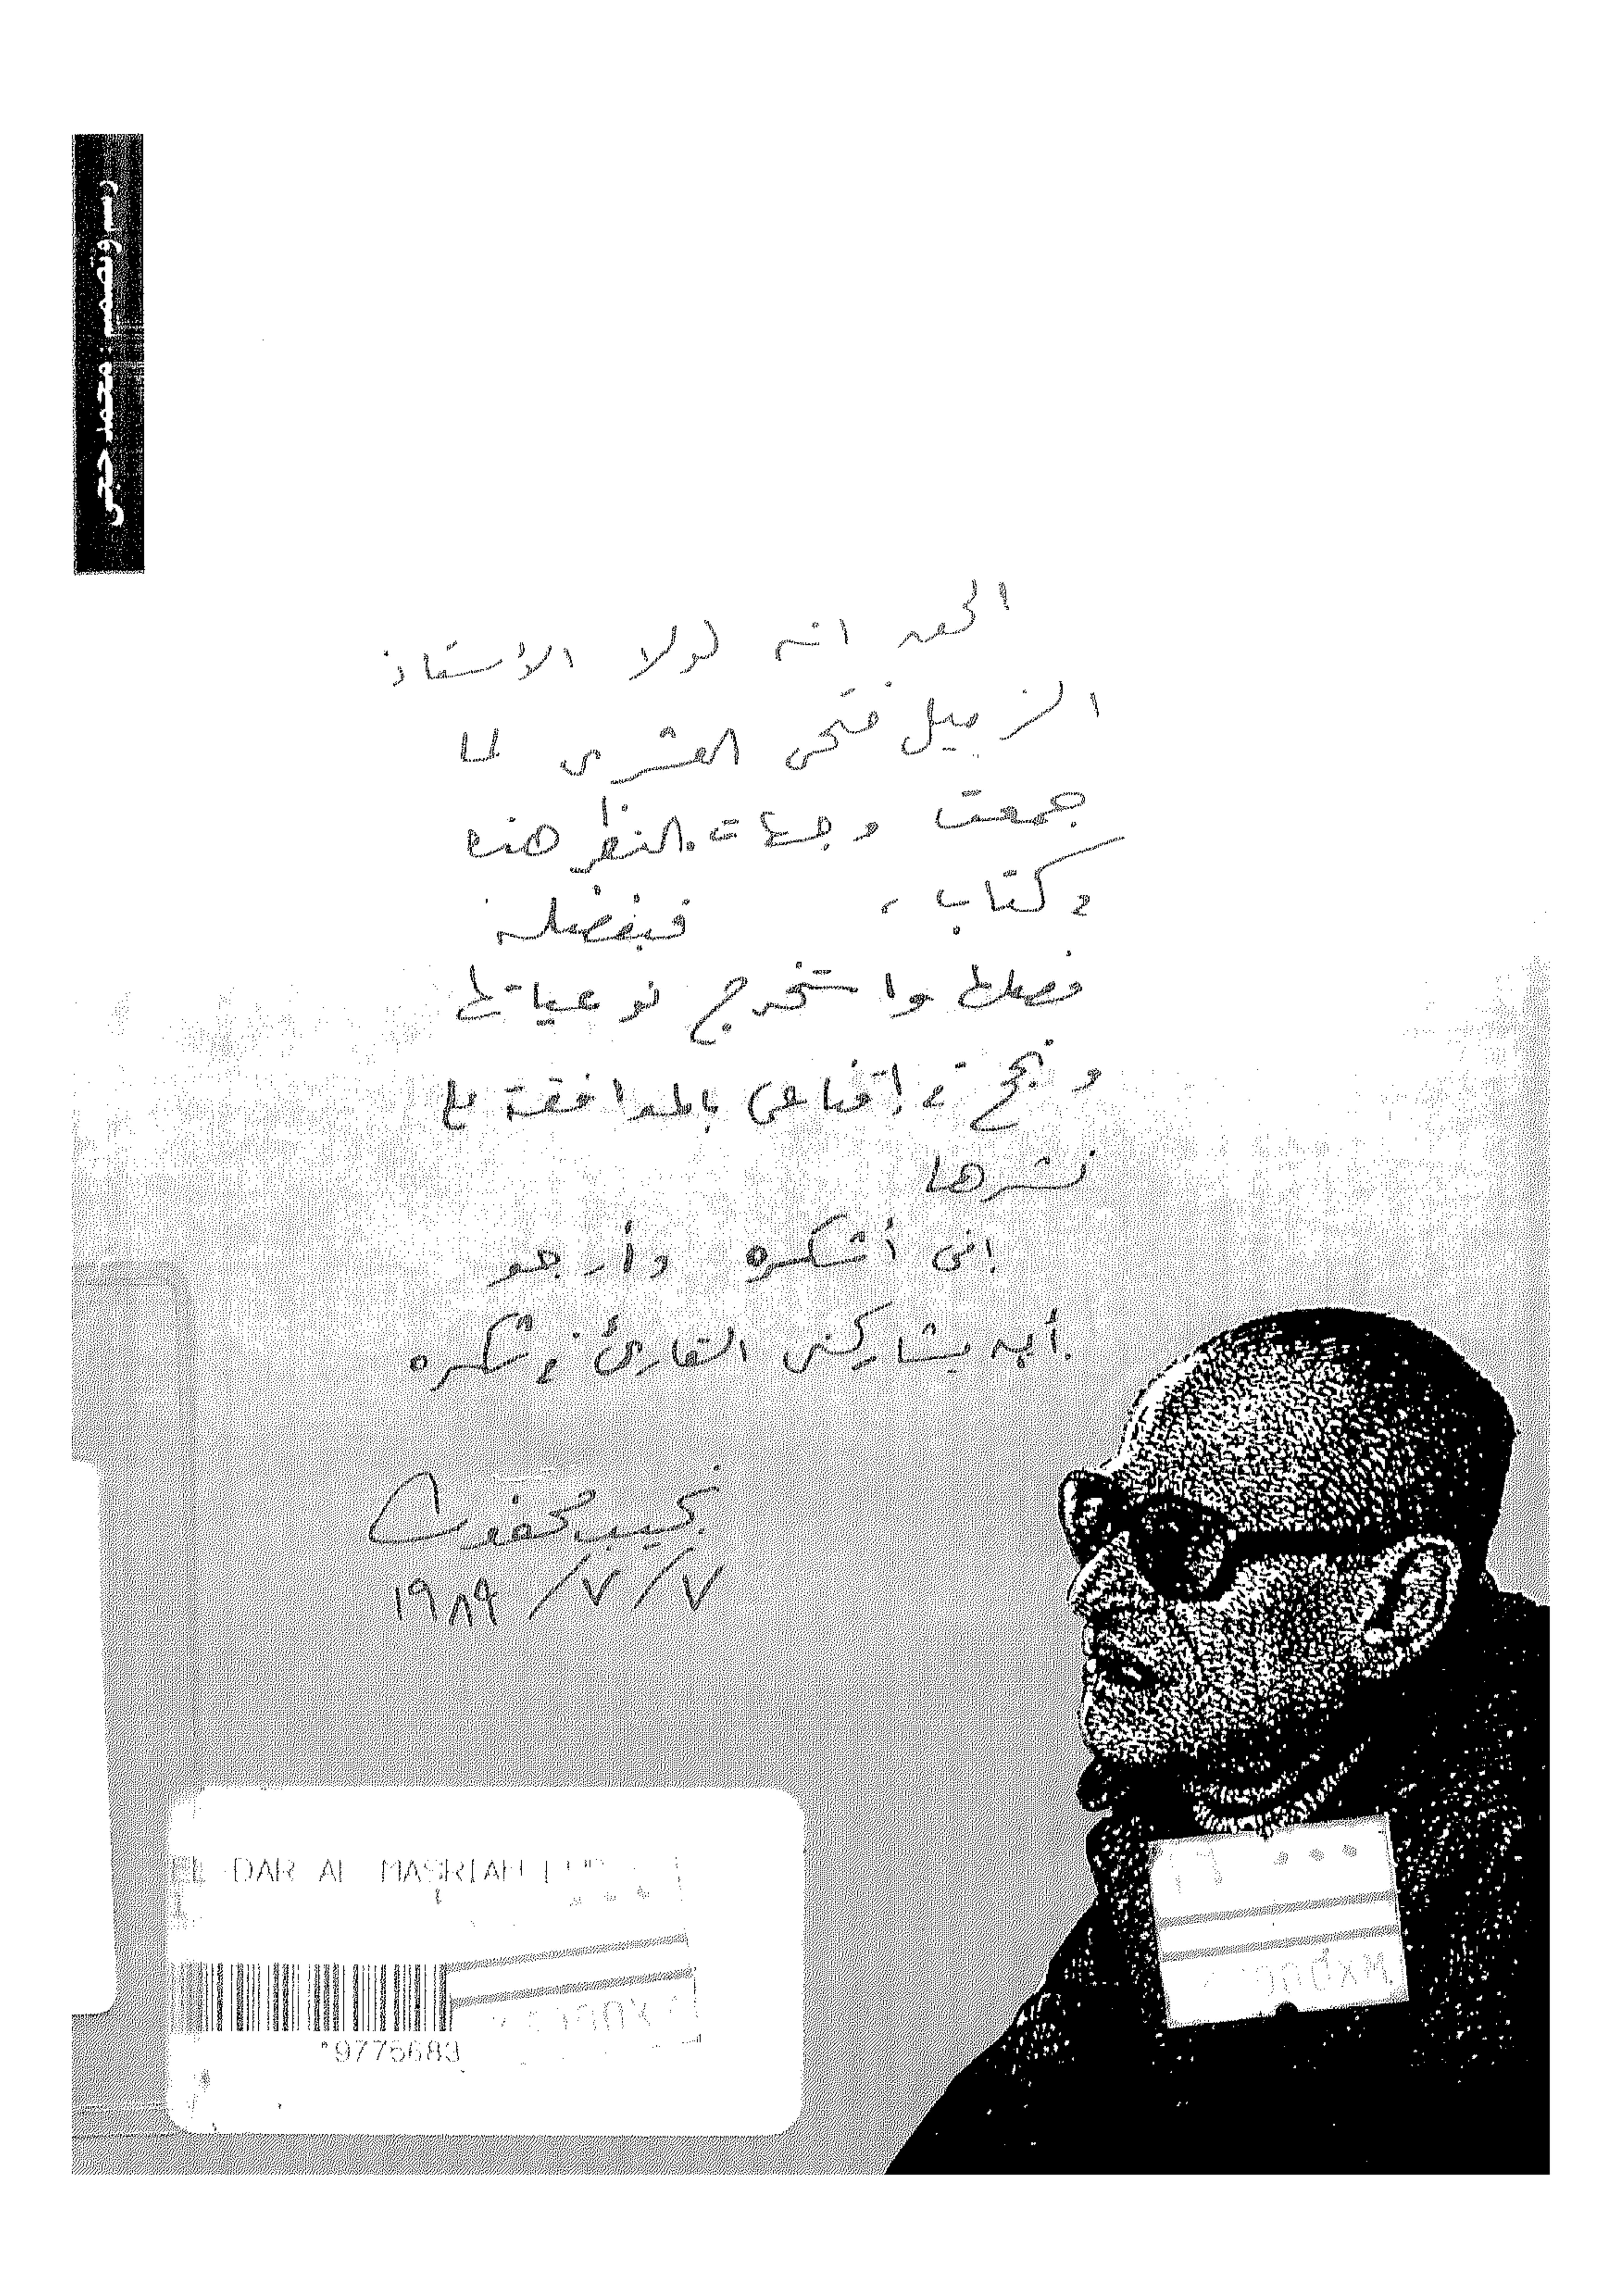 رسم وتصميم : محمد حجى
الحق انه لولا الأستاذ
الزميل فتحى العشرى لما
جمعت وجهات النظر هذه
فى كتاب ، فبفضله
فصلها واستخرج نوعياتها
ونجح فى إقناعى بالموافقة على
نشرها
إنى أشكره وأرجو
أن يشاركنى القارئ فى شكره
نجيب محفوظ
٧/٧/١٩٨٩
EL DAR AL MASRIAH
*9775683